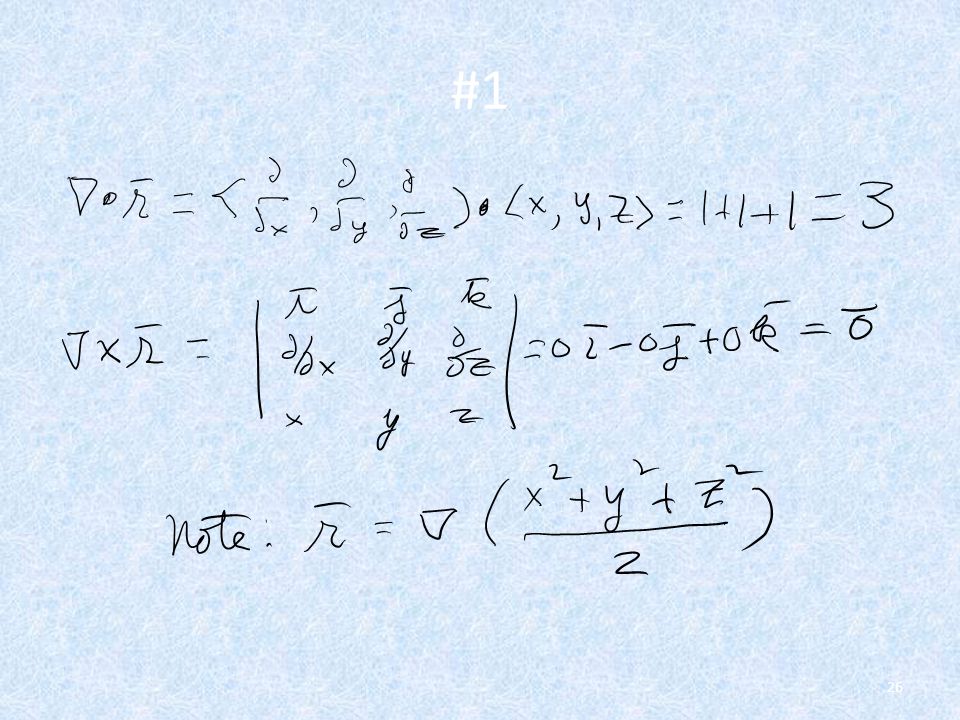 #1
∇•r̄ = ⟨∂/∂x, ∂/∂y, ∂/∂z⟩•⟨x, y, z⟩ = 1+1+1 = 3
∇×r̄ = | ī j̄ k̄
∂/∂x ∂/∂y ∂/∂z
x y z | = 0ī-0j̄+0k̄ = 0̄
Note: r̄ = ∇((x²+y²+z²)/2)
26